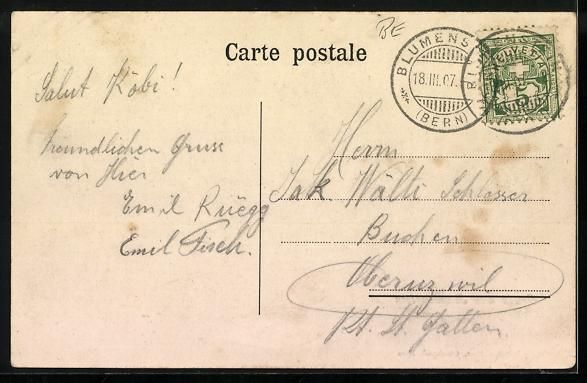 Carte postale
BE
BLUMENS
18.III.07.
(BERN)
HELVETIA
Salut Köbi!
freundlichen Gruss
von Hier
Emil Rüegg
Emil Fisch.
Herrn
Jak. Wälti Schlosser
Buchen
Oberuzwil
Kt. St. Gallen.